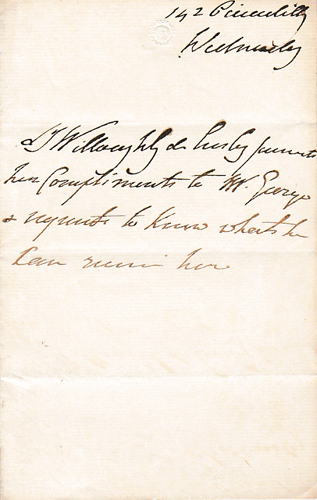 142 Piccadilly
Wednesday
Ly Willoughby de Eresby presents
her Compliments to Mr. George
& requests to Know when he
Can receive her